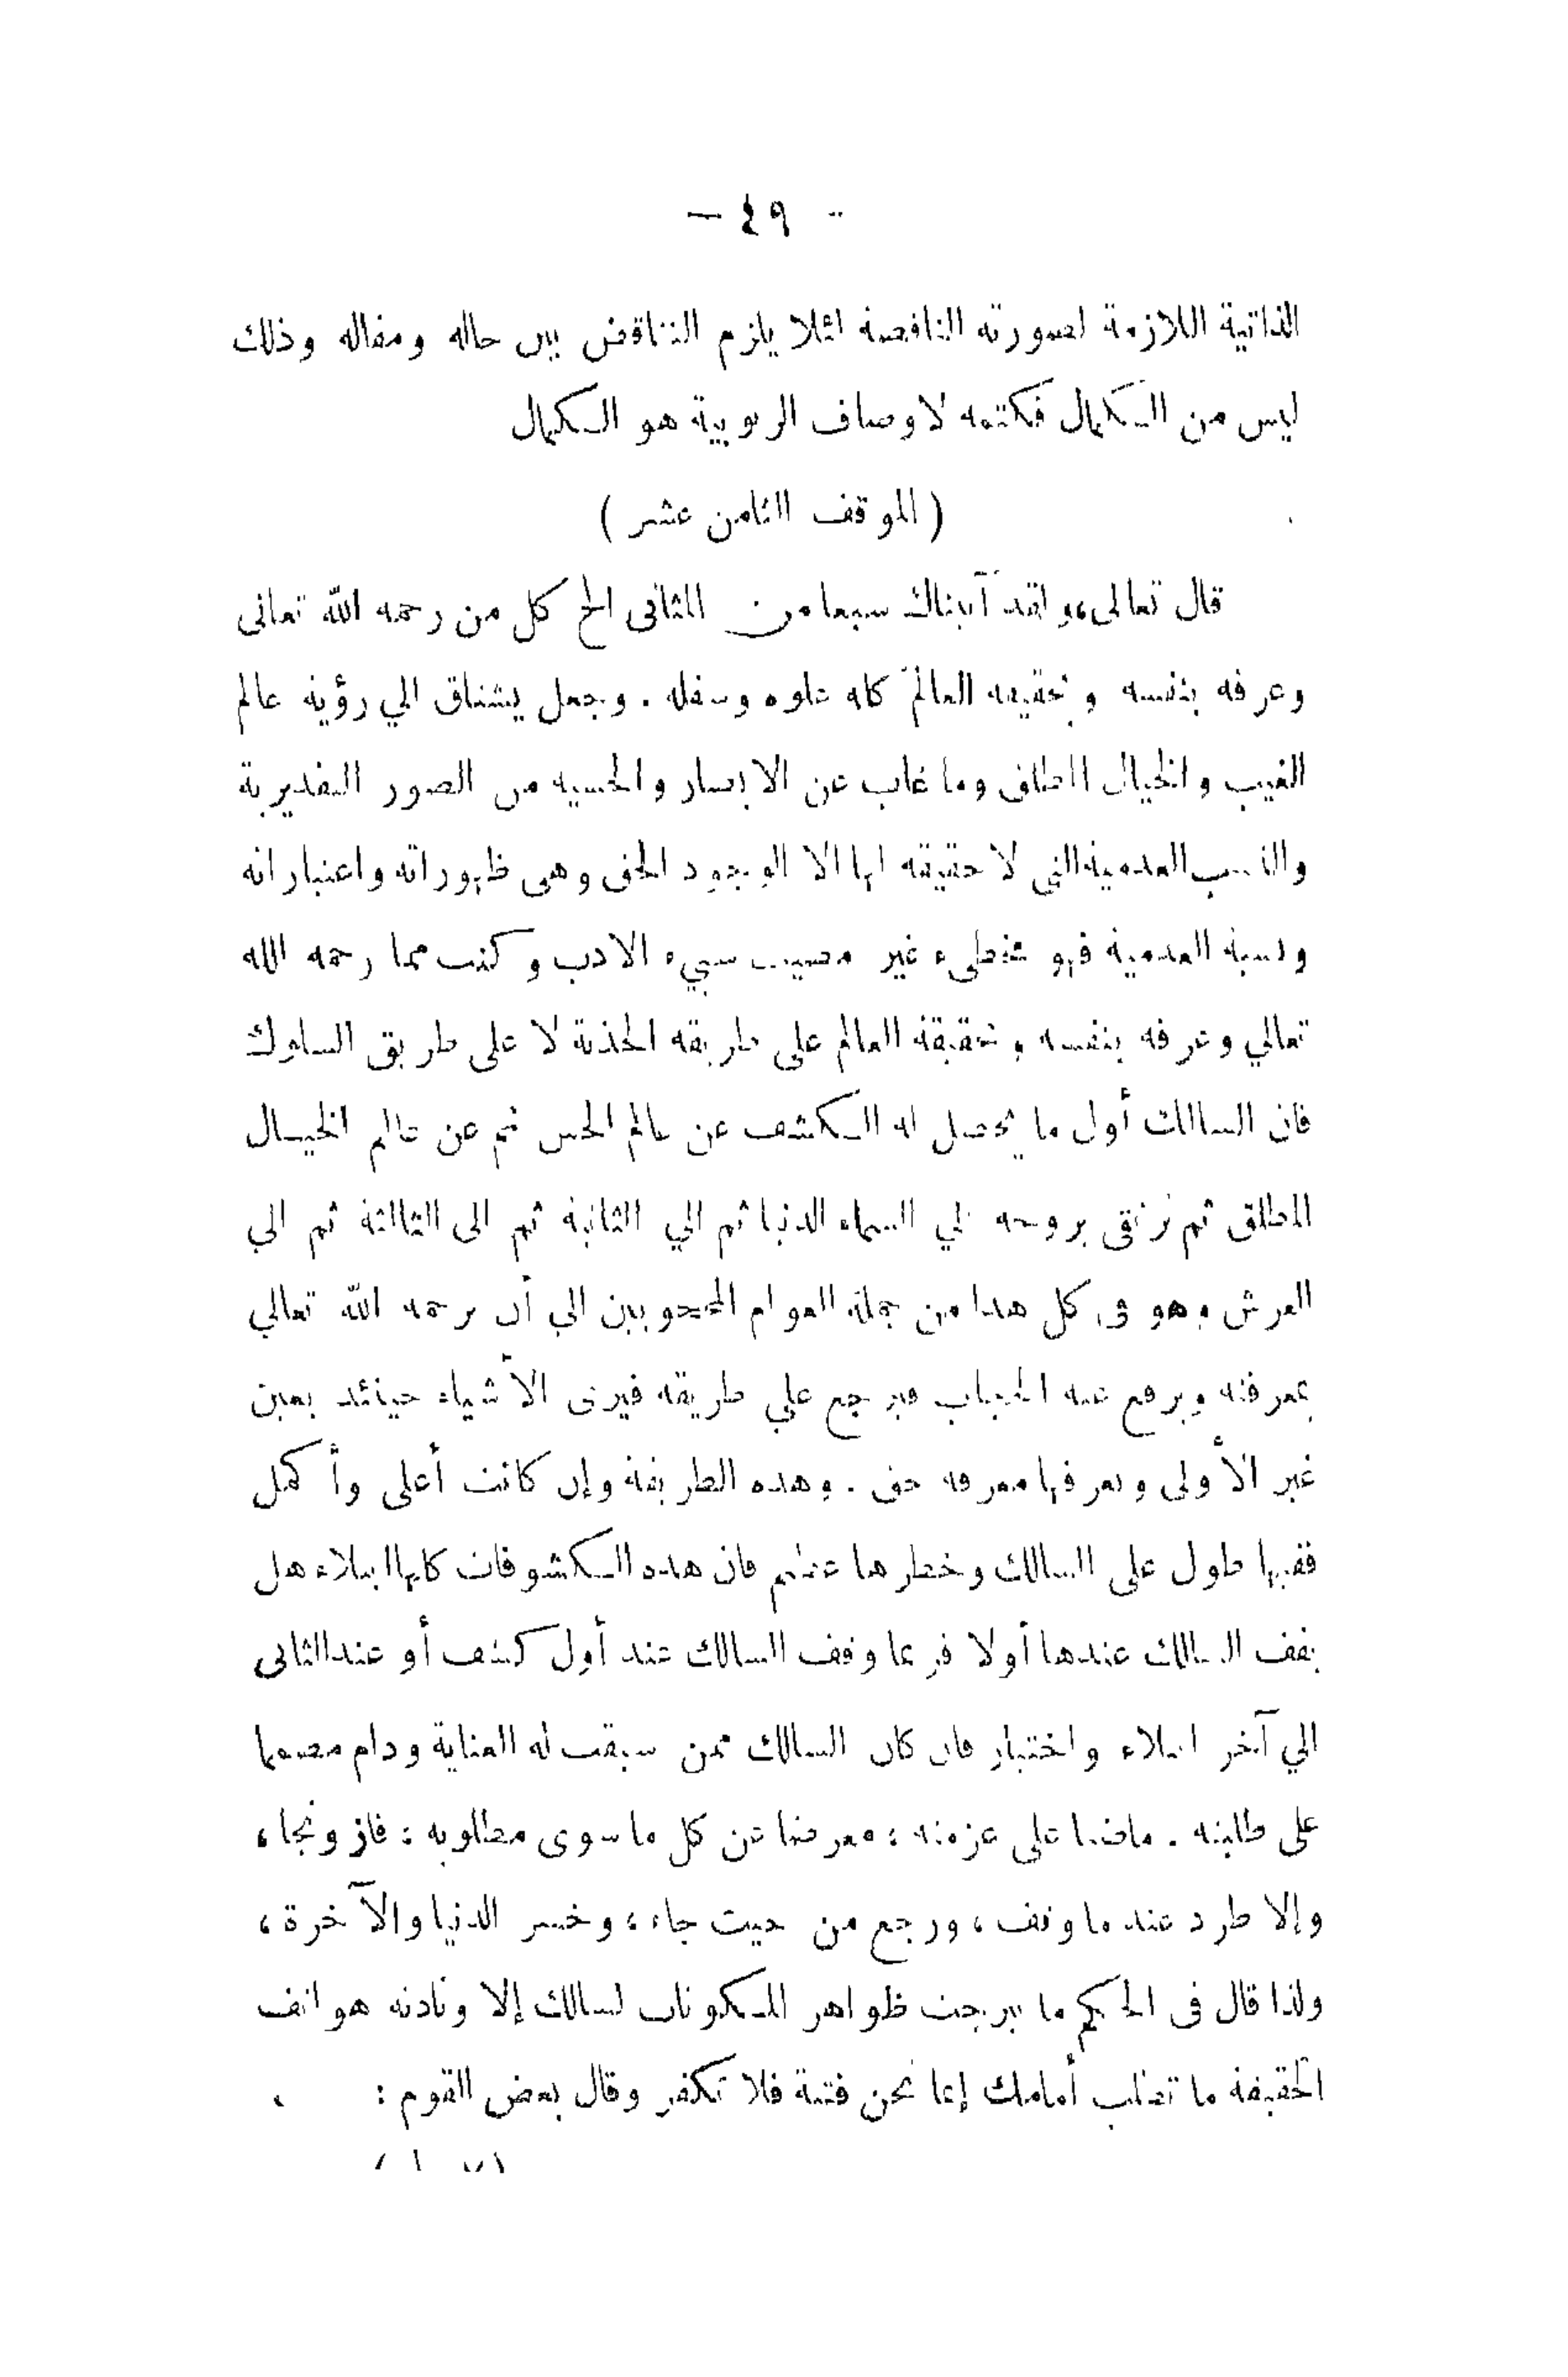 — ٤٩ —
الذاتية اللازمة لصورته الناقصة لئلا يلزم التناقض بين حاله ومقاله وذلك
ليس من الكمال فكتمه لاوصاف الربوبية هو الكمال
( الموقف الثامن عشر )
قال تعالى، ولقد آتيناك سبعا من المثانى الخ كل من رحمه الله تعالى
وعرفه بنفسه وبحقيقه العالم كله علوه وسفله . وجعل يشتاق الي رؤية عالم
الغيب والخيال المطلق وما غاب عن الابصار والحسيه من الصور التقديرية
والنسب العدمية التي لا حقيقه لها الا الوجود الحق وهى ظهوراته واعتباراته
ونسبه العدمية فهو مخطىء غير مصيب سيء الادب وكنت مما رحمه الله
تعالي وعرفه بنفسه وبحقيقة العالم على طريقه الجذبة لا على طريق السلوك
فان السالك أول ما يحصل له الكشف عن عالم الحس ثم عن عالم الخيال
المطلق ثم يرتقى بروحه الي السماء الدنيا ثم الي الثانية ثم الى الثالثة ثم الي
العرش وهو فى كل هدا من جملة العوام المحجوبين الي أن يرحمه الله تعالي
بمعرفته ويرفع عنه الحجاب فيرجع علي طريقه فيرى الأشياء حينئد بعين
غير الأولى ويعرفها معرفه حق . وهده الطريقة وإن كانت أعلى وأكمل
ففيها طول على السالك وخطرها عظيم فان هده الكشوفات كلها ابتلاء هل
يقف السالك عندها أولا فربما وقف السالك عند أول كشف أو عند الثانى
الي آخر ابتلاء واختبار فان كان السالك ممن سبقت له العناية ودام مصمما
على طلبته . ماضيا على عزمته ؛ معرضا عن كل ما سوى مطلوبه ؛ فاز ونجا ،
وإلا طرد عند ما وقف ، ورجع من حيث جاء ، وخسر الدنيا والآخرة ،
ولذا قال فى الحكم ما تبرجت ظواهر المكونات لسالك إلا ونادته هواتف
الحقيقة ما تطلب أمامك إنما نحن فتنة فلا تكفر وقال بعض القوم :